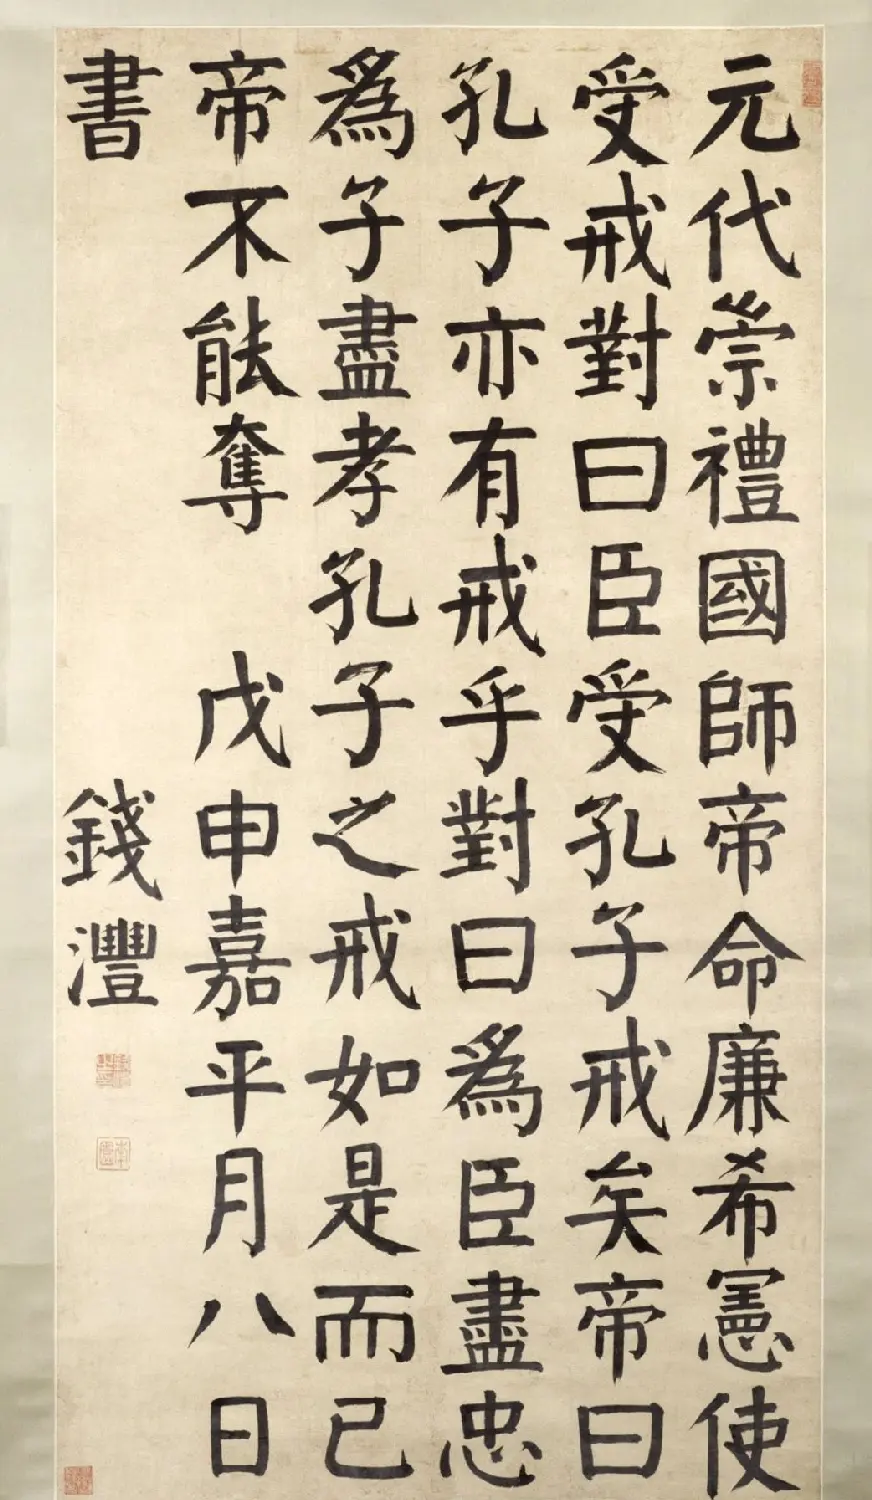 元代崇禮國師帝命廉希憲使
受戒對曰臣受孔子戒矣帝曰
孔子亦有戒乎對曰為臣盡忠
為子盡孝孔子之戒如是而已
帝不能奪 戊申嘉平月八日
書 錢灃